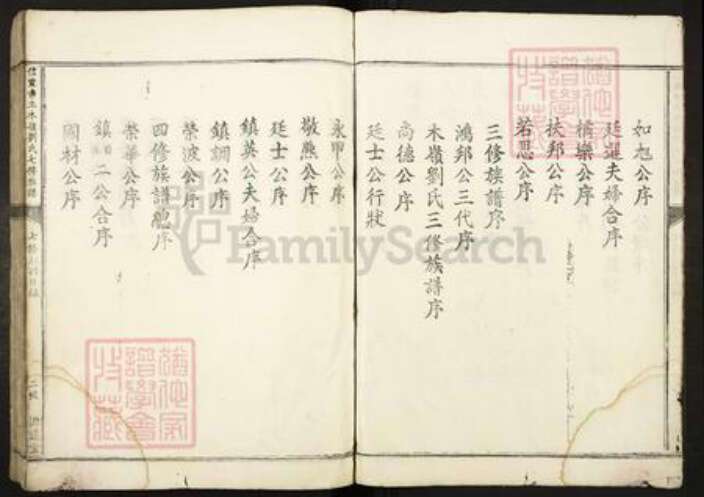 如旭公序
廷選夫婦合序
橘樂公序
扶邦公序
若思公序
三修族譜序
鴻邦公三代序
木嶺劉氏三修族譜序
尚德公序
廷士公行狀
永甲公序
敬熙公序
廷士公序
鎮英公夫婦合序
鎮調公序
榮波公序
四修族譜總序
榮華公序
鎮 二公合序
閣材公序
木嶺劉氏七修族譜
FamilySearch
譜學會
收藏
譜學會
收藏